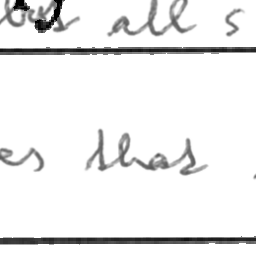 all s
es that